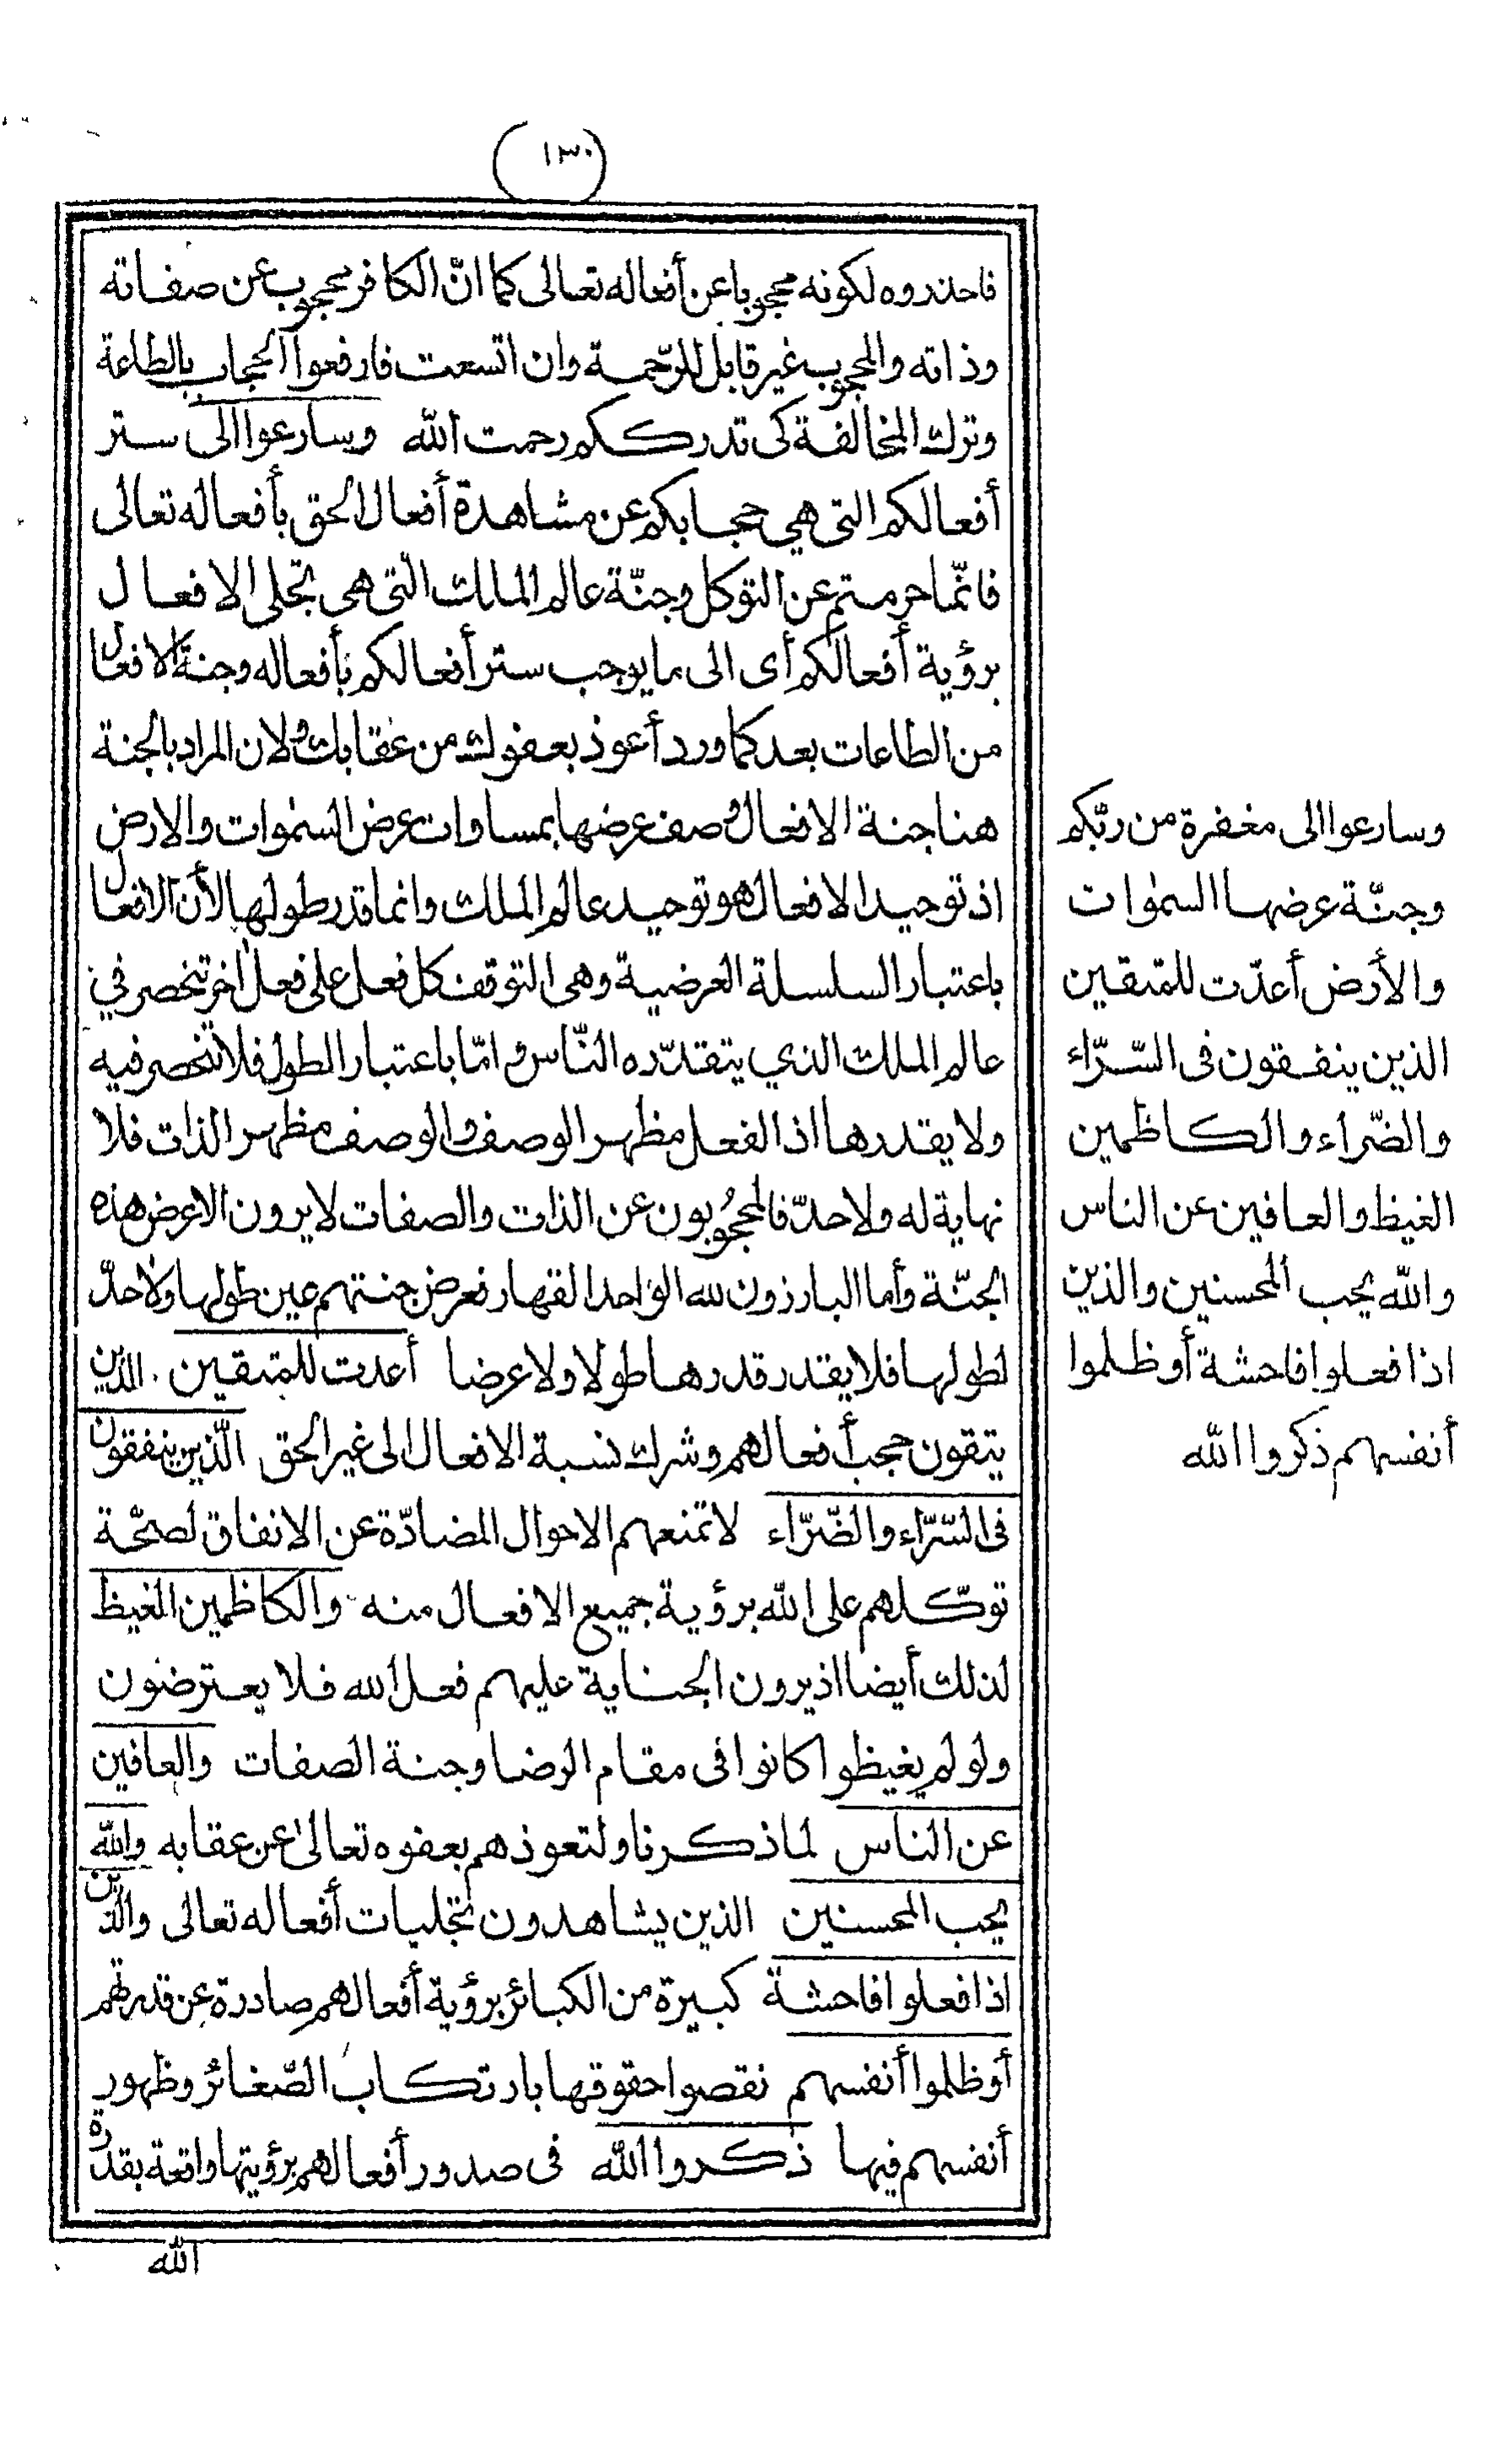 (١٣٠)
فاحذروه لكونه محجوبا عن أفعاله تعالى كما انّ الكافر محجوب عن صفاته
وذاته والمحجوب غير قابل للرّحمة وان اتسعت فارفعوا الحجاب بالطاعة
وترك المخالفة كى تدرككم رحمت الله وسارعوا الى ستر
أفعالكم التى هي حجابكم عن مشاهدة أفعال الحق بأفعاله تعالى
فانّما حرمتم عن التوكل وجنّة عالم الملك التى هى تجلى الافعال
برؤية أفعالكم أى الى ما يوجب ستر أفعالكم بأفعاله وجنة الافعال
من الطاعات بعد كما ورد أعوذ بعفوك من عقابك ولان المراد بالجنة
هنا جنة الافعال وصف عرضها بمساوات عرض السمٰوات والارض
اذ توحيد الافعال هو توحيد عالم الملك وانما قدر طولها لأن الافعال
باعتبار السلسلة العرضية وهى التوقف كل فعل على فعل اخر تنحصر في
عالم الملك الذي يتقدّره النّاس وامّا باعتبار الطول فلا تنحصر فيه
ولا يقدرها اذ الفعل مظهر الوصف والوصف مظهر الذات فلا
نهاية له ولا حدّ فالمحجُوبون عن الذات والصفات لا يرون الا عرض هذه
الجنّة وأما البارزون لله الواحد القهار فعرض جنتهم عين طولها ولا حدّ
لطولها فلا يقدر قدرها طولا ولا عرضا أعدت للمتقين . الذين
يتقون حجب أفعالهم وشرك نسبة الافعال الى غير الحق الّذين ينفقون
فى السّرّاء والضّرّاء لا تمنعهم الاحوال المضادّة عن الانفاق لصحّة
توكّلهم على الله برؤية جميع الافعال منه والكاظمين الغيظ
لذلك أيضا اذ يرون الجناية عليهم فعل الله فلا يعترضون
ولو لم يغيظوا كانوا فى مقام الرضا وجنة الصفات والعافين
عن الناس لما ذكرنا ولتعوذهم بعفوه تعالىٰ عن عقابه والله
يحب المحسنين الذين يشاهدون تجليات أفعاله تعالى والذين
اذا فعلوا فاحشة كبيرة من الكبائر برؤية أفعالهم صادرة عن قدرتهم
أو ظلموا أنفسهم نقصوا حقوقها بارتكاب الصّغائر وظهور
أنفسهم فيها ذكروا الله فى صدور أفعالهم برؤيتها واقعة بقدرة
الله
وسارعوا الى مغفرة من ربّكم
وجنّة عرضها السمٰوات
والأرض أعدّت للمتقين
الذين ينفقون فى السّرّاء
والضّراء والكاظمين
الغيظ والعافين عن الناس
والله يحب المحسنين والذين
اذا فعلوا فاحشة أو ظلموا
أنفسهم ذكروا الله